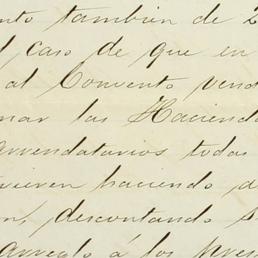 nto tambien de 2
l caso de que en
al Convento vend
nar las Haciend
arrendatarios todas
vieren haciendo d
on, descontando s
arreglo á los pres